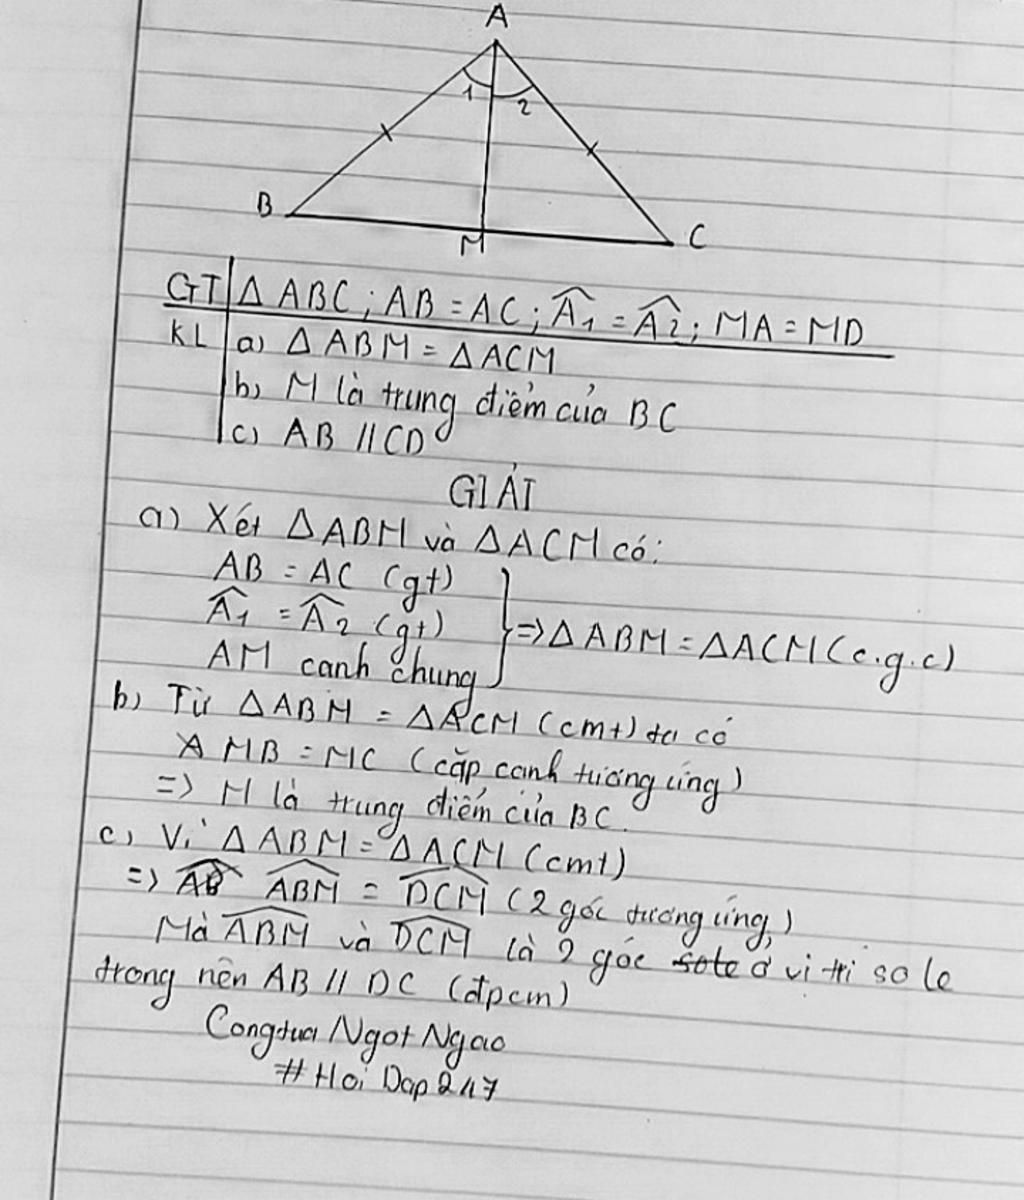 A
1
2
B
M
C
GT ΔABC; AB = AC; Â1 = Â2; MA = MD
KL a) ΔABM = ΔACM
b) M là trung điểm của BC
c) AB // CD
GIẢI
a) Xét ΔABM và ΔACM có:
AB = AC (gt)
Â1 = Â2 (gt)
AM cạnh chung
} => ΔABM = ΔACM (c.g.c)
b) Từ ΔABM = ΔACM (cmt) ta có
MB = MC (cặp cạnh tương ứng)
=> M là trung điểm của BC.
c) Vì ΔABM = ΔACM (cmt)
=> ABM = DCM (2 góc tương ứng)
Mà ABM và DCM là 2 góc ở vị trí so le
trong nên AB // DC (đpcm)
Congdua Ngot Ngao
# Hoi Dap 247